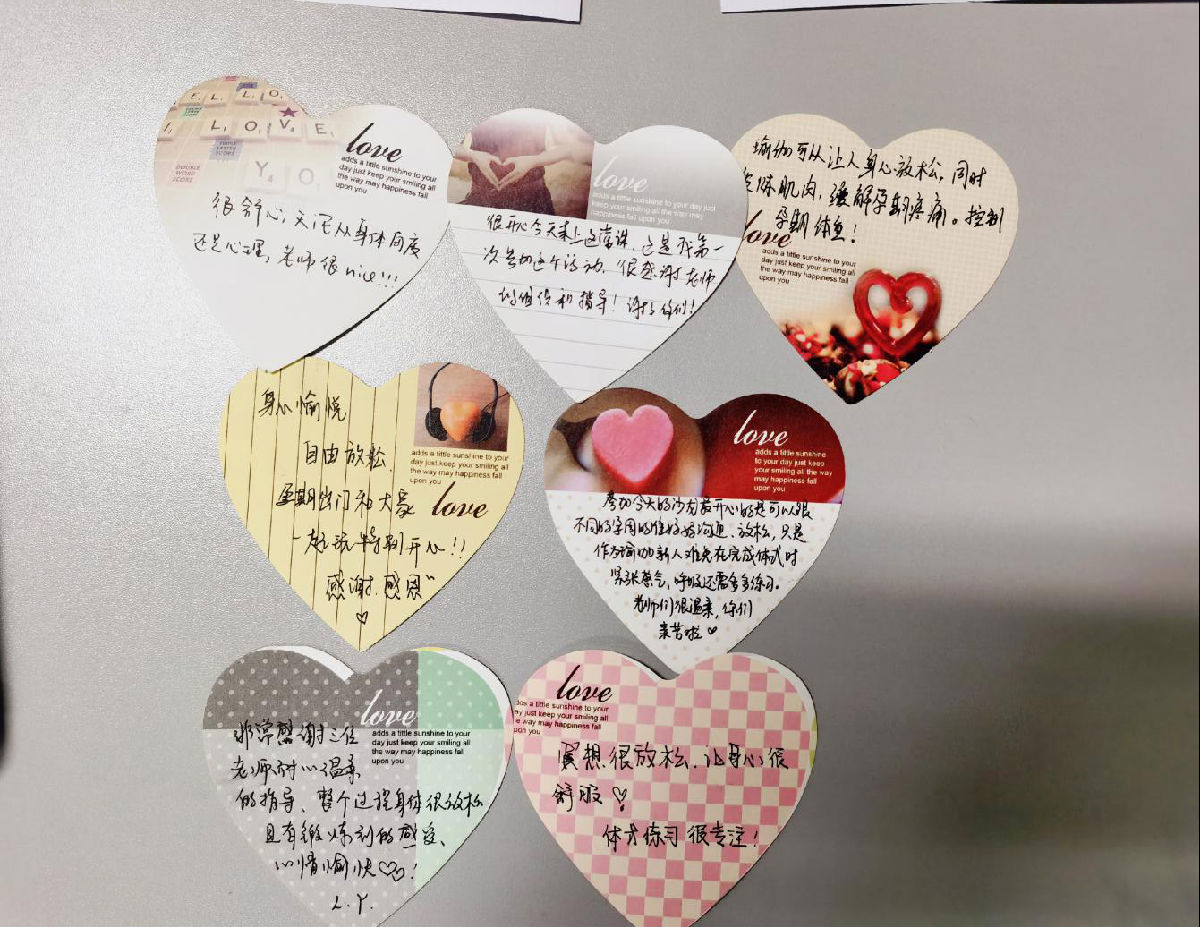 E L L O
L O V E
Y O
DOUBLE
WORD
SCORE
love
adds a little sunshine to your
day just keep your smiling all
the way may happiness fall
upon you
很舒心, 无论从身体角度
还是心理, 老师很 nice!!!
love
adds a little sunshine to your day just
keep your smiling all the way may happiness
fall upon you
很开心今天来上这堂课, 这是我第一
次参加这个活动, 很感谢老师
们的 和指导! 谢谢你们!
瑜伽可以让人身心放松, 同时
锻炼肌肉, 缓解孕期疼痛。控制
孕期体重!
love
adds a little sunshine to your
day just keep your smiling all
the way may happiness fall
upon you
身心愉悦
自由放松
孕期出门和大家
一起玩特别开心!!
感谢.感恩"
♡
adds a little sunshine to your
day just keep your smiling all
the way may happiness fall
upon you
love
love
adds a little sunshine
to your day just keep
your smiling all the
way may happiness fall
upon you
参加今天的沙龙最开心的是可以跟
不同的孕周的准妈妈沟通、放松, 只是
作为瑜伽新人难免在完成体式时
紧张 , 呼吸还需多多练习.
老师们很温柔, 你们
辛苦啦 ♡
love
adds a little sunshine to your
day just keep your smiling all
the way may happiness fall
upon you
非常感谢三位
老师耐心温柔
的指导、整个过程身体很放松
且有锻炼到的感受、
心情愉快♡♡!
L.Y.
love
adds a little sunshine to your
day just keep your smiling all
the way may happiness fall
upon you
冥想很放松, 让身心很
舒服 ♡
体式练习很专注!